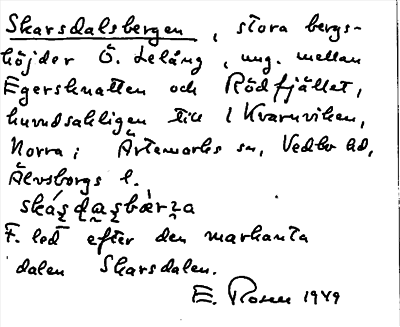 Skarsdalsbergen, stora bergs-
höjder Ö. Lelång, ung. mellan
Egersknatten och Rödfjället,
huvudsakligen till 1 Kvarnviken,
Norra; Ärtemarks sn, Vedbo hd,
Älvsborgs l.
F. led efter den markanta
dalen Skarsdalen.
E. Rosen 1949